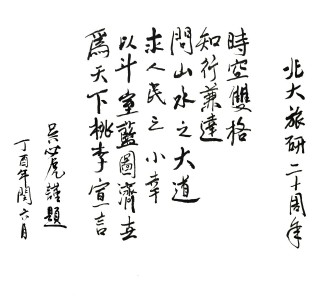 北大旅研二十周年
時空雙格
知行兼達
問山水之大道
求人民之小幸
以斗室藍圖濟在
為天下桃李宣言
吳必虎謹題
丁酉年閏六月